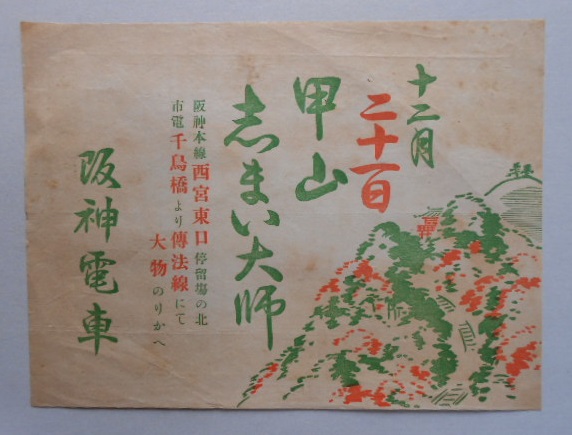 十二月
二十一日
甲山
志まい大師
阪神本線西宮東口停留場の北
市電千鳥橋より傳法線にて
大物のりかへ
阪神電車